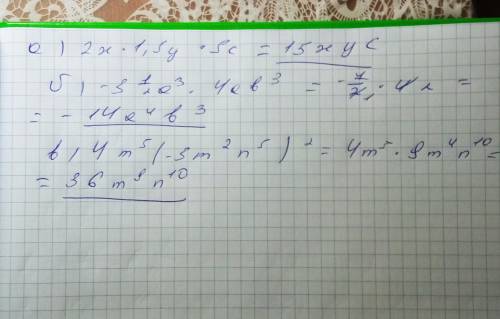 а) 2x · 1,5y · 5c = 15xyc
б) -3 1/2 a³ · 4ab³ = -7/2 · 4 =
= - 14a⁴b³
в) 4m⁵(-3m²n⁵)² = 4m⁵ · 9m⁴n¹⁰ =
= 36m⁹n¹⁰